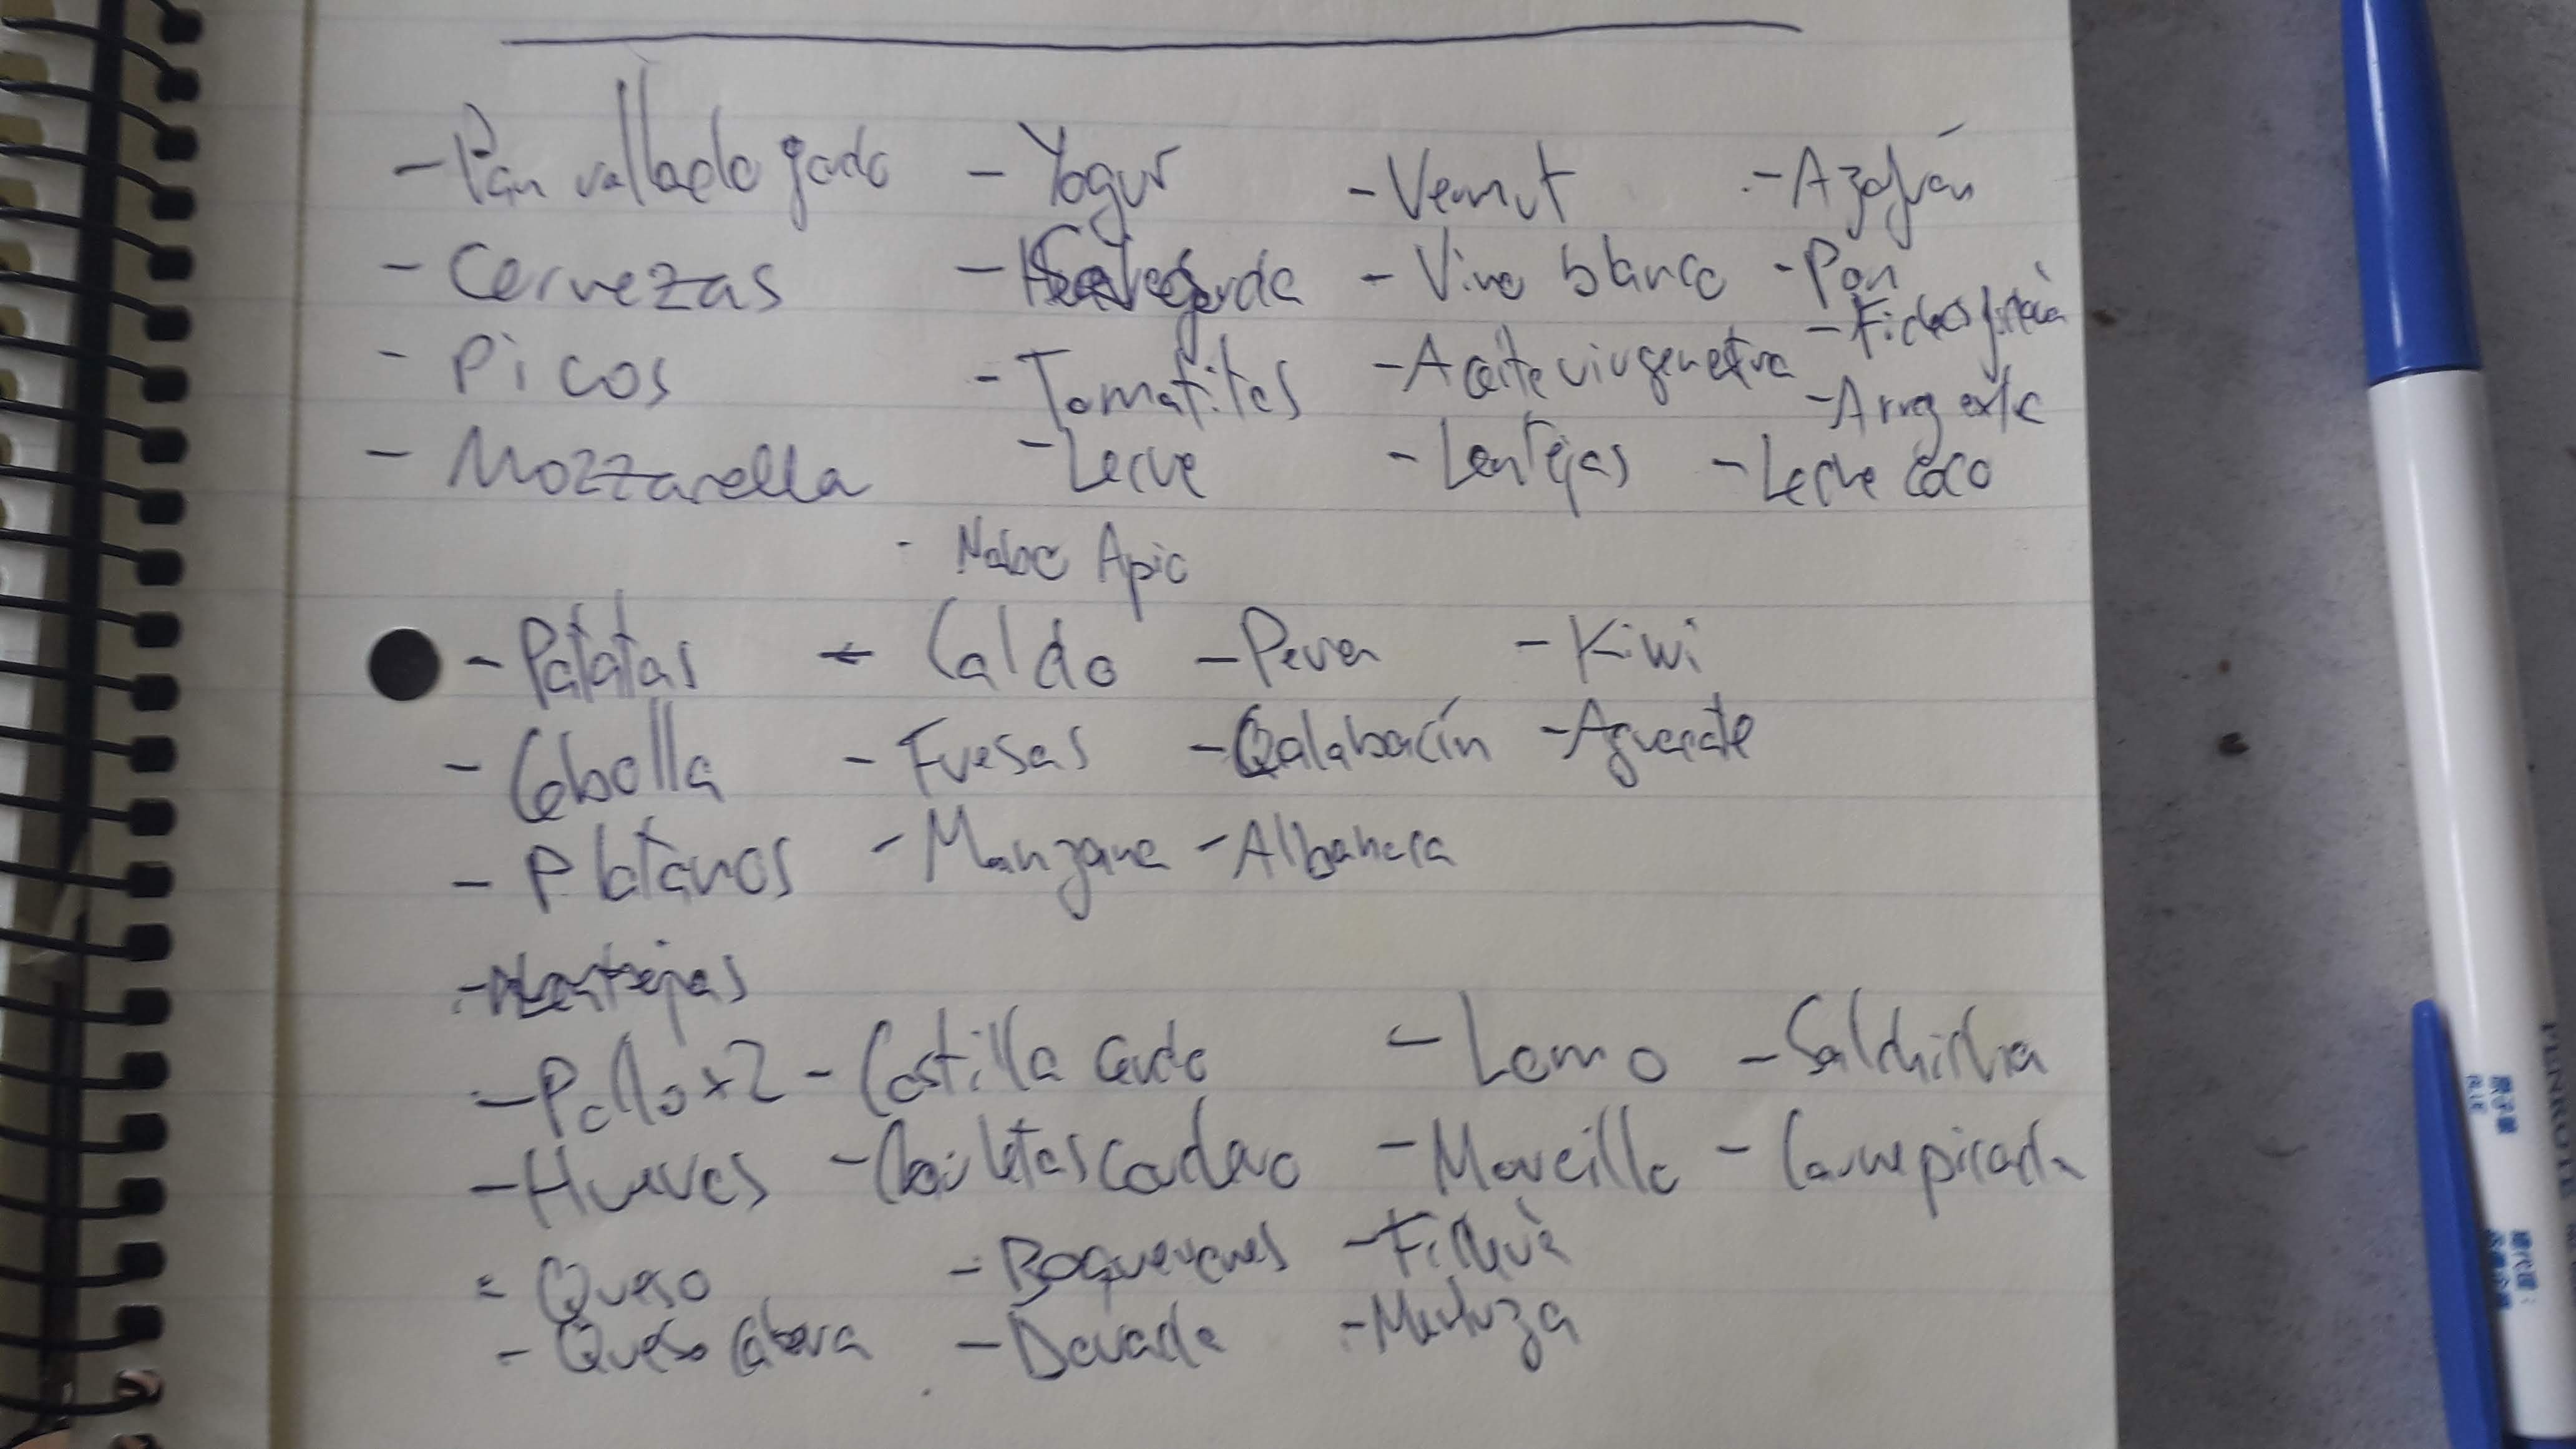 - Pan vallado gordo - Yogur - Vermut - Azafrán
- Cervezas - Sal gorda - Vino blanco - Pan
- Fideos fideuà
- Picos - Tomatitos - Aceite virgen extra
- Arroz
- Mozzarella - Leche - Lentejas - Leche coco
- Nabo Apio
- Patatas - Caldo - Pera - Kiwi
- Cebolla - Fresas - Calabacín - Aguacate
- Platanos - Manzana - Albahaca
- Lentejas
- Pollo x2 - Costilla Cerdo - Lomo - Salchicha
- Huevos - Chuletas Cordero - Morcilla - Carne picada
- Queso - Boquerones - Fideuà
- Queso Cabra - Dorada - Merluza